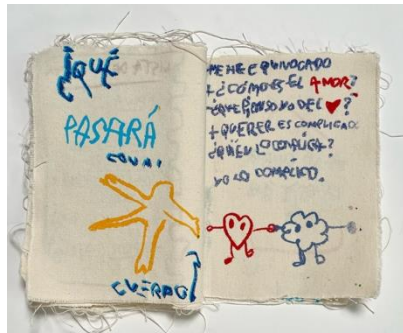 ¡QUÉ
PASARÁ
CON MI
CUERPO!
ME HE EQUIVOCADO
+ ¿CÓMO ES EL AMOR?
¿QUÉ PIENSO YO DEL ♥?
+ QUERER ES COMPLICADO
¿QUIÉN LO COMPLICA?
YO LO COMPLICO.